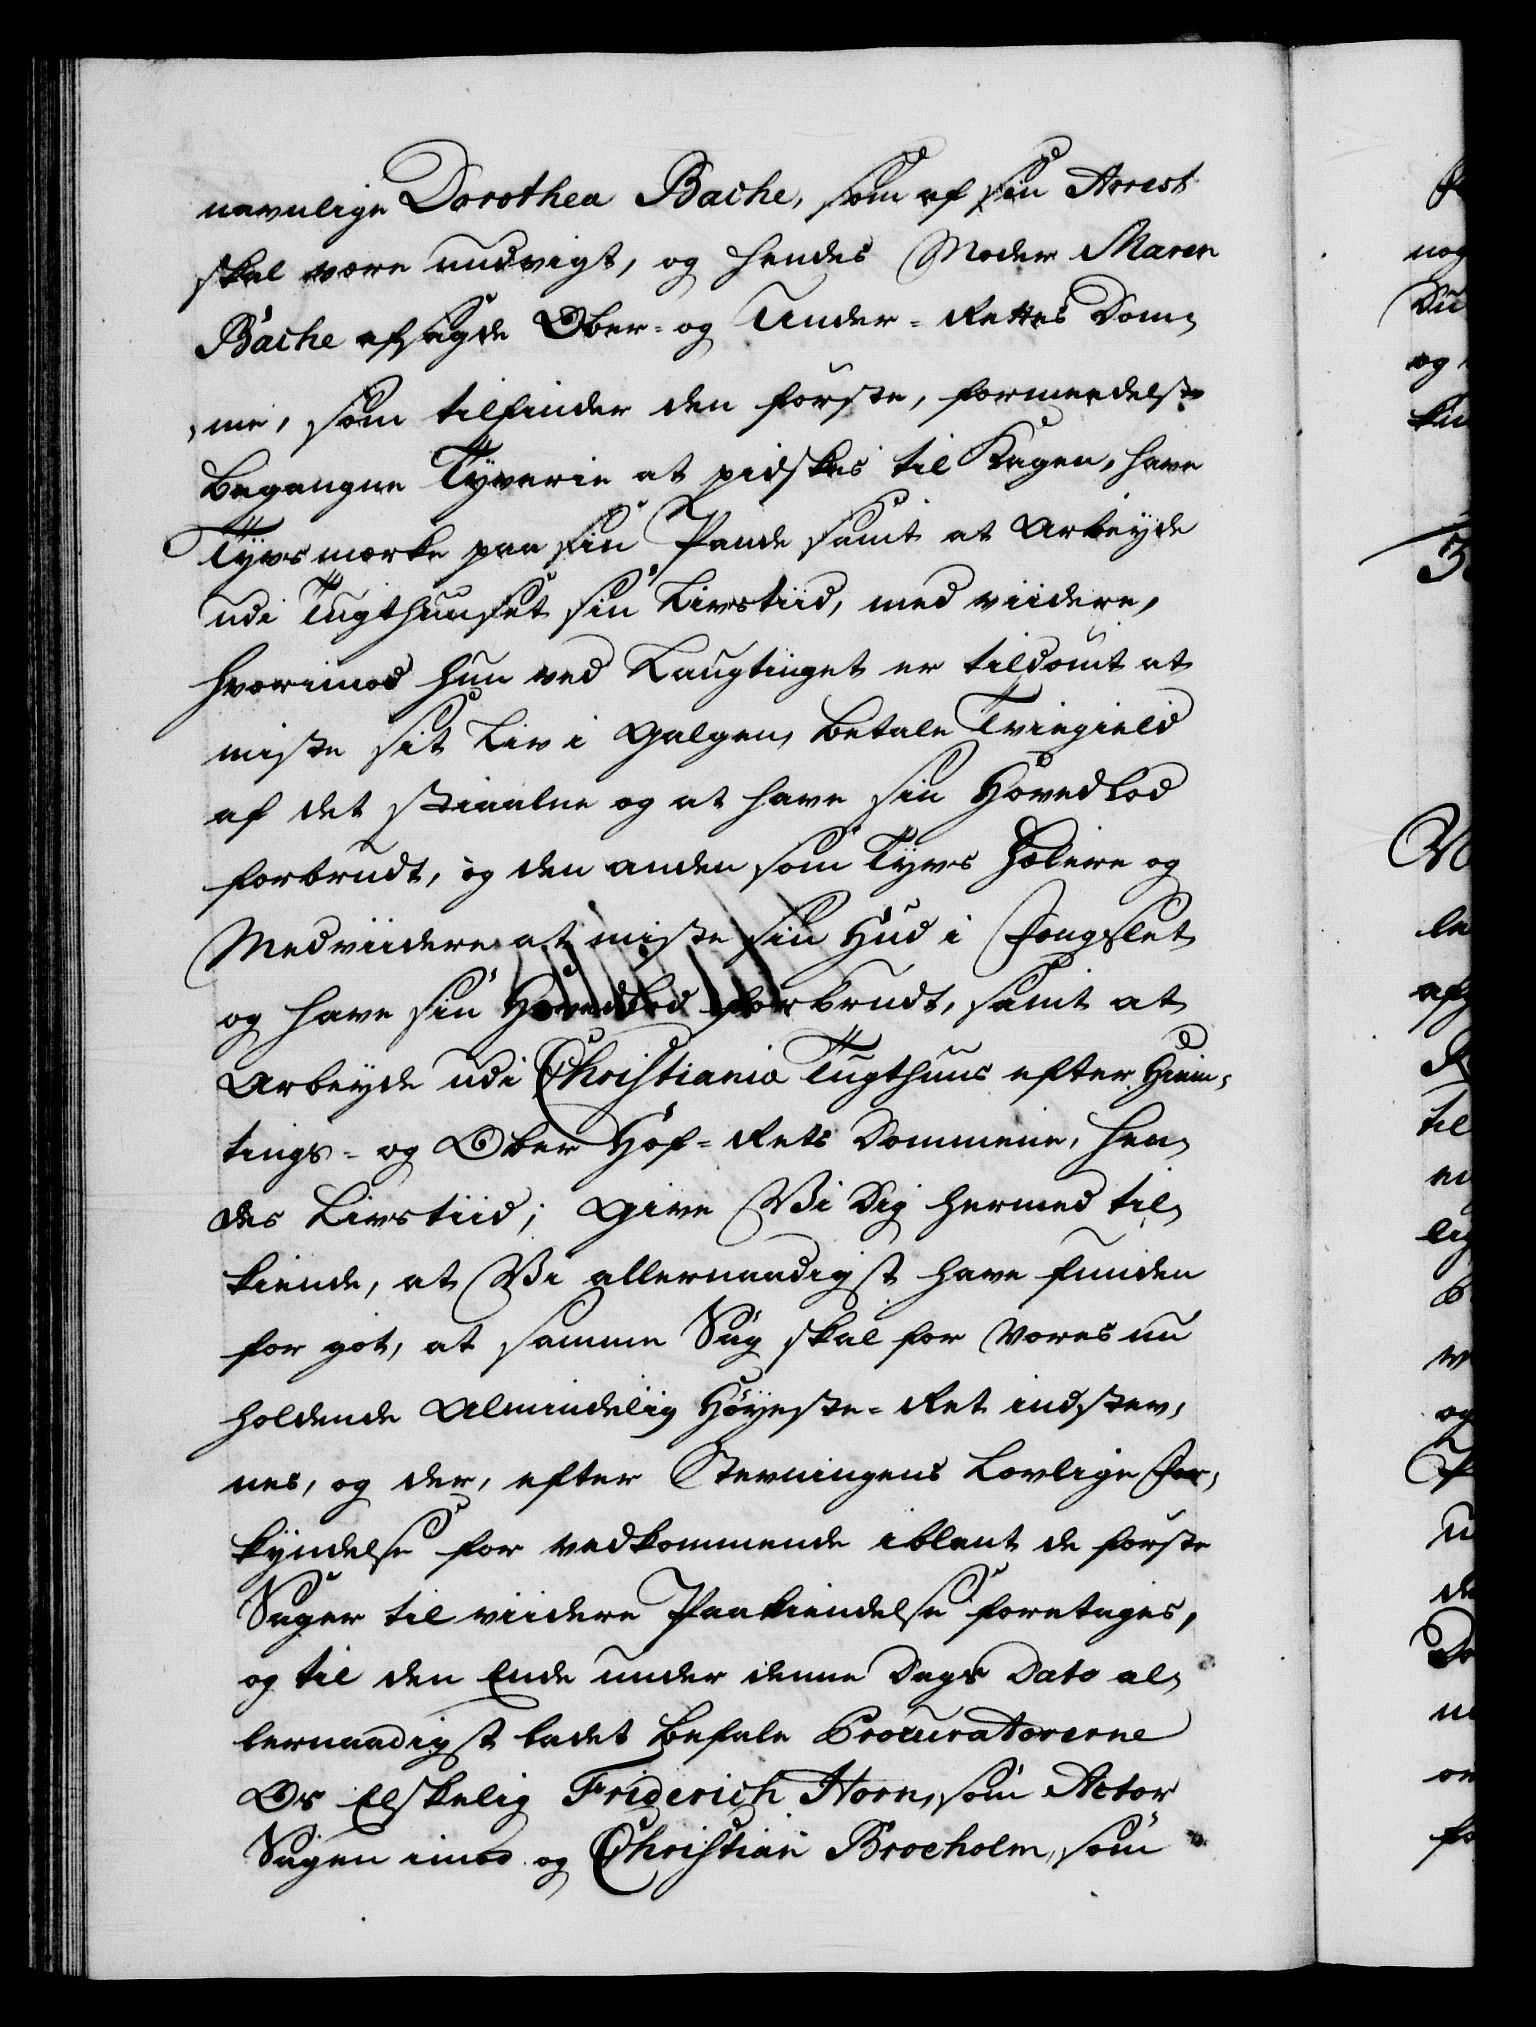 navnlige Dorothea Bache, som af sin Arrest
skal være undvigt, og hendes Moder Maren
Bache afsagde Ober- og Under-Rettes Dom-
me, som tilfinder den første, formeedelst
begangne Tyverie at pidskes til Kagen, have
Tyvs mærke paa sin Pande samt at Arbeyde
udi Tugthuuset sin Livstiid, med viidere,
hvorimod hun ved Laugtinget er tildømt at
miste sit Liv i Galgen, betale Tviegield
af det stiaalne og at have sin Hovedlod
forbrudt, og den anden som Tyvs Hælere og
Medviidere at miste sin Hud i Fengslet
og have sin Hovedlod forbrudt, samt at
Arbeyde udi Christiania Tugthuus efter Hiem-
tings- og Ober Hof-Rets Dommene, hen-
des Livstiid; Give Vi Dig hermed til-
kiende, at Vi allernaadigst have funden
for got, at samme Sag skal for Vores nu
holdende Almindelig Høyeste-Ret indstev-
nes, og der, efter Stevningens Lovlige For-
kyndelse for vedkommende iblant de første
Sager til viidere Paakiendelse foretages,
og til den Ende under denne Dags Dato al-
lernaadigst ladet befale Procuratorerne
Os Elskelig Friderich Horn, som Actor
Sagen imod og Christian Brocholm, som